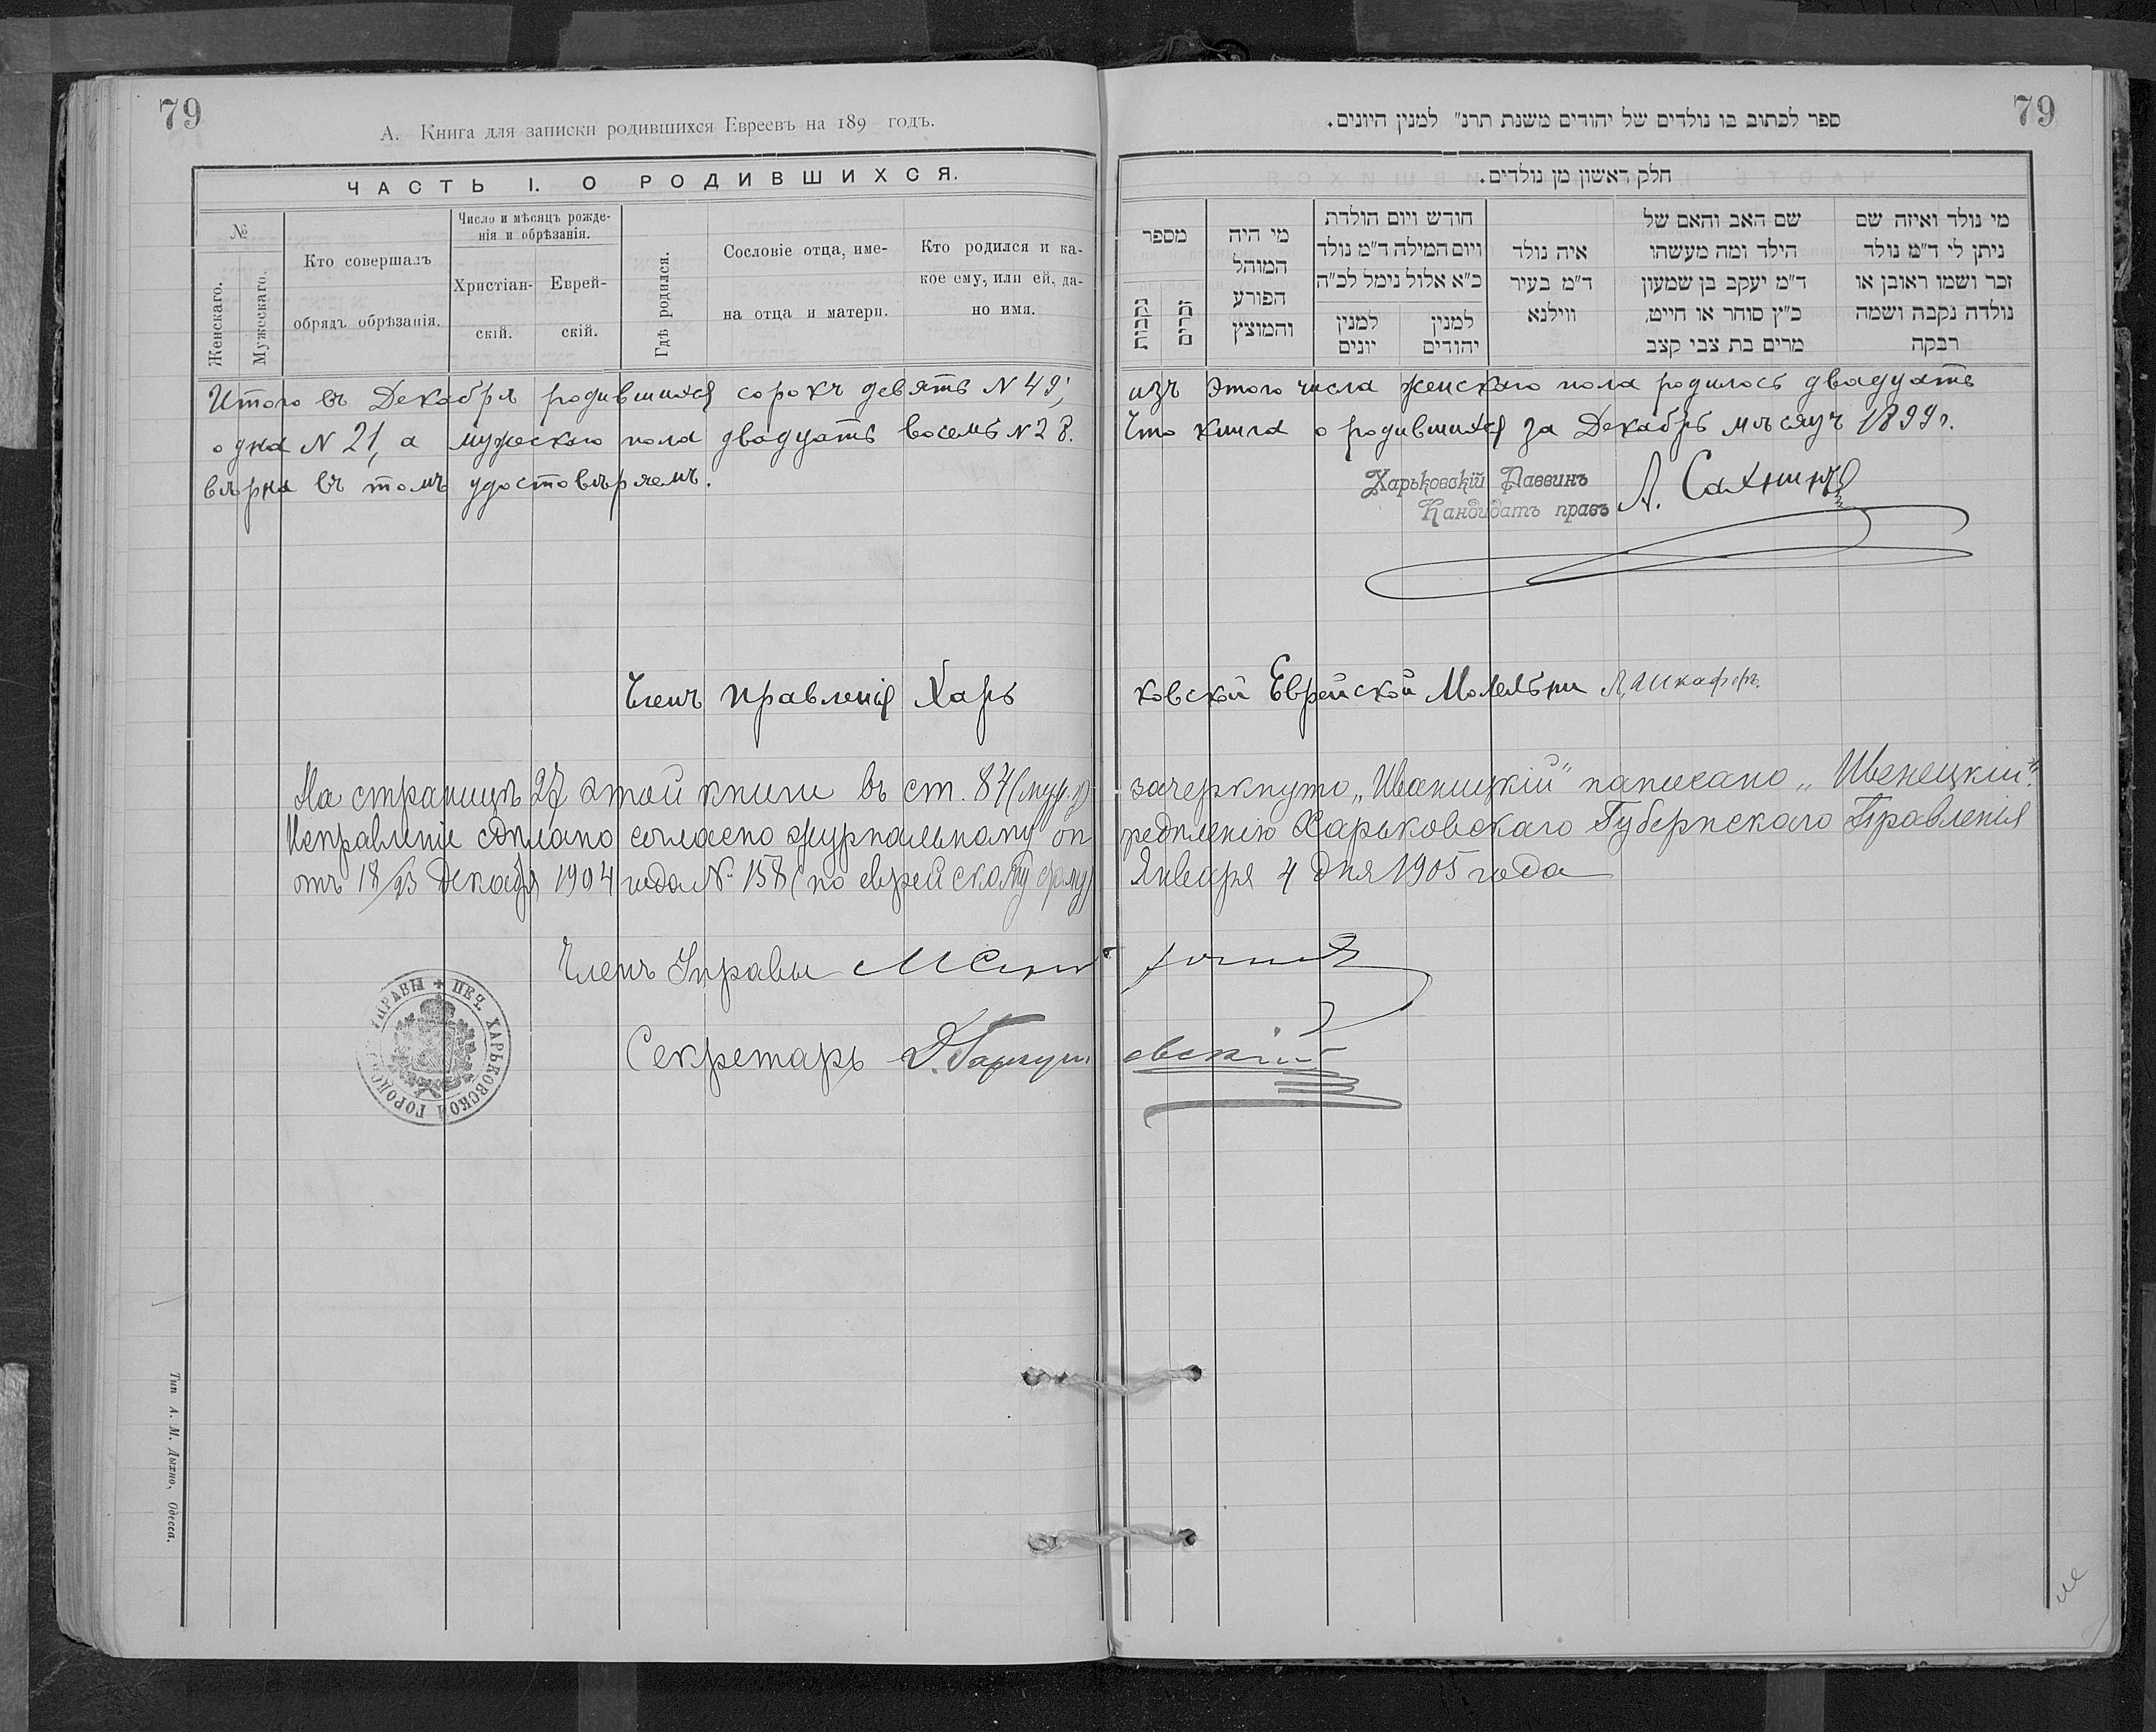 79
А. Книга для записки родившихся Евреевъ на 189 годъ.
ЧАСТЬ I. О РОДИВШИХСЯ.
№
Женскаго.
Мужескаго.
Кто совершалъ
обрядъ обрѣзанія.
Число и мѣсяцъ рожде-
нія и обрѣзанія.
Христіан-
скій.
Еврей-
скій.
Гдѣ родился.
Сословіе отца, име-
на отца и матери.
Кто родился и ка-
кое ему, или ей, да-
но имя.
79
ספר לכתוב בו נולדים של יהודים משנת תרנ״ למנין היונים.
חלק ראשון מן נולדים.
מספר
מי היה
המוהל
הפורע
והמוצץ
חודש ויום הולדת
ויום המילה ד״מ נולד
כ״א אלול נימל לכ״ה
למנין
יונים
למנין
יהודים
איה נולד
ד״מ בעיר
ווילנא
שם האב והאם של
הילד ומה מעשהו
ד״מ יעקב בן שמעון
כ״ץ סוחר או חייט,
מרים בת צבי קצב
מי נולד ואיזה שם
ניתן לי ד״מ נולד
זכר ושמו ראובן או
נולדה נקבה ושמה
רבקה
Итого въ Декабрѣ родившихся сорокъ девять N 49, изъ этого числа женскаго пола родилось двадцать
одна N 21, а мужескаго пола двадцать восемь N 28. Что книга о родившихся за Декабрь мѣсяцъ 1899 г.
вѣрна въ томъ удостовѣряемъ.
Харьковскій Раввинъ
Кандидатъ правъ А. Сахнинъ
Членъ правленія Харьковской Еврейской Молельни
На страницѣ 27 этой книги въ ст. 87 (муж.) зачеркнуто „Иваницкій" написано „Ивенецкій".
Исправленіе сдѣлано согласно журнальному опредѣленію Харьковскаго Губернскаго Правленія
отъ 18/23 Декабря 1904 года № 158 (по еврейскому Января 4 дня 1905 года
Членъ Управы
Секретарь
ПЕЧ. ХАРЬКОВСКОЙ ГОРОДСК УПРАВЫ
Тип А. М. Дыхно, Одесса.